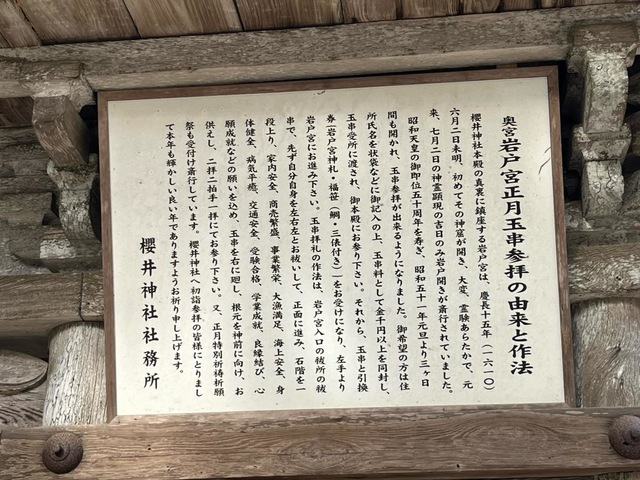 奥宮岩戸宮正月玉串参拝の由来と作法
櫻井神社本殿の真裏に鎮座する岩戸宮は、慶長十五年（一六一〇）
六月二日未明、初めてその神窟が開き、大変、霊験あらたかで、元
来、七月二日の神霊顕現の吉日のみ岩戸開きが斎行されていました。
昭和天皇の御即位五十周年を寿ぎ、昭和五十一年元旦より三ヶ日
間も開かれ、玉串参拝が出来るようになりました。御希望の方は住
所氏名を状袋などに御記入の上、玉串料として金千円以上を同封し、
玉串受所に渡され、御本殿にお参り下さい。それから、玉串と引換
券（岩戸宮神札・福笹（鯛・三俵付き））をお受けになり、左手より
岩戸宮にお進み下さい。玉串拝礼の作法は、岩戸宮入口の祓所の祓
串で、先ず自分自身を左右左とお祓いして、正面に進み、石階を一
段上り、家内安全、商売繁盛、事業繁栄、大漁満足、海上安全、身
体健全、病気平癒、交通安全、受験合格、学業成就、良縁結び、心
願成就などの願いを込め、玉串を右に廻し、根元を神前に向け、お
供えし、二拝二拍手一拝にてお参り下さい。又、正月特別祈祷祈願
祭も受付け斎行しています。櫻井神社へ初詣参拝の皆様にとりまし
て本年も輝かしい良い年でありますようお祈り申し上げます。
櫻井神社社務所